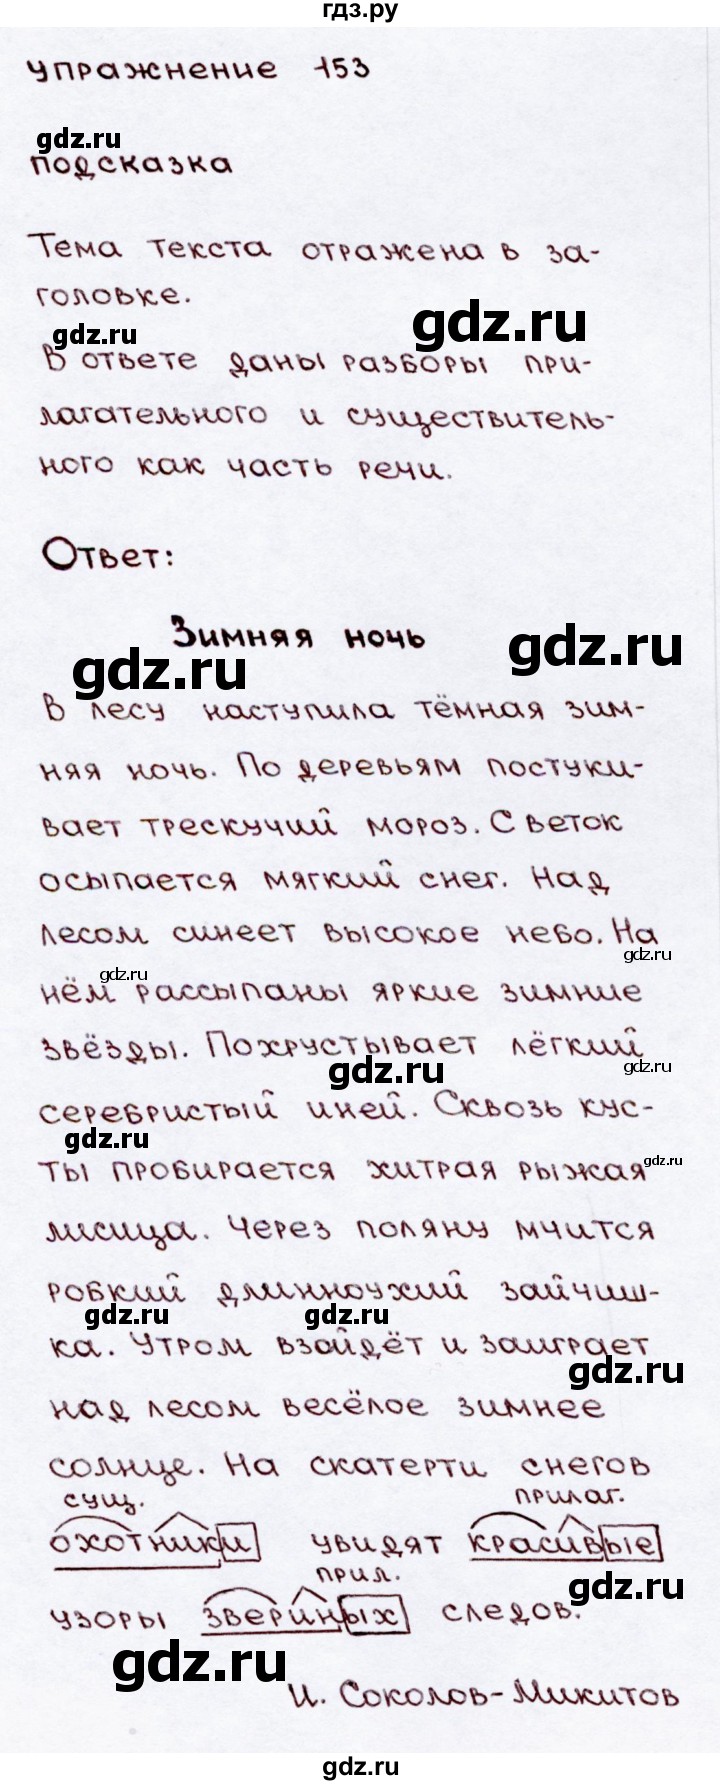 гдз.ру
упражнение 153
gdz.ru
подсказка
Тема текста отражена в за-
головке.
gdz.ru
gdz.ru
В ответе даны разборы при-
лагательного и существитель-
ного как часть речи.
Ответ:
Зимняя ночь
gdz.ru
gdz.ru
В лесу наступила тёмная зим-
няя ночь. По деревьям постуки-
вает трескучий мороз. С веток
осыпается мягкий снег. Над
лесом синеет высокое небо. На
gdz.ru
gdz.ru
нём рассыпаны яркие зимние
звёзды. Похрустывает лёгкий
gdz.ru
gdz.ru
серебристый иней. Сквозь кус-
gdz.ru
ты пробирается хитрая рыжая
gdz.ru
лисица. Через поляну мчится
робкий длинноухий зайчиш-
gdz.ru
gdz.ru
ка. Утром взойдёт и заиграет
gdz.ru
над лесом весёлое зимнее
солнце. На скатерти снегов
сущ. прилаг.
охотники увидят красивые
прил.
gdz.ru
узоры звериных следов.
gdz.ru
И. Соколов-Микитов
gdz.ru